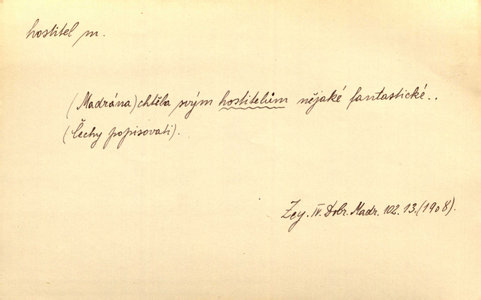 hostitel m.
(Madrána) chtěla svým hostitelům nějaké fantastické..
(Čechy popisovati).
Zey. IV. Dobr. Madr. 102. 13. (1908).